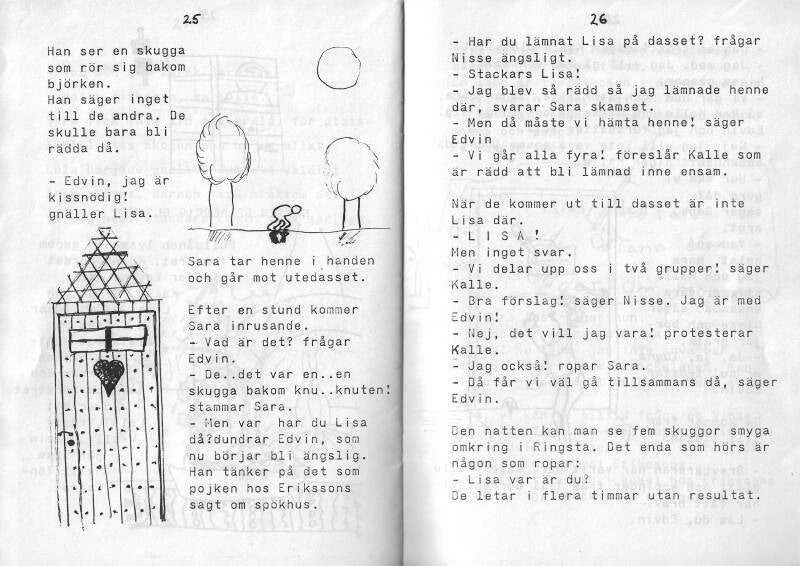 25
Han ser en skugga
som rör sig bakom
björken.
Han säger inget
till de andra. De
skulle bara bli
rädda då.
- Edvin, jag är
kissnödig!
gnäller Lisa.
Sara tar henne i handen
och går mot utedasset.
Efter en stund kommer
Sara inrusande.
- Vad är det? frågar
Edvin.
- De..det var en..en
skugga bakom knu..knuten!
stammar Sara.
- Men var  har du Lisa
då?dundrar Edvin, som
nu börjar bli ängslig.
Han tänker på det som
pojken hos Erikssons
sagt om spökhus.
26
- Har du lämnat Lisa på dasset? frågar
Nisse ängsligt.
- Stackars Lisa!
- Jag blev så rädd så jag lämnade henne
där, svarar Sara skamset.
- Men då måste vi hämta henne! säger
Edvin
- Vi går alla fyra! föreslår Kalle som
är rädd att bli lämnad inne ensam.
När de kommer ut till dasset är inte
Lisa där.
- L I S A !
Men inget svar.
- Vi delar upp oss i två grupper! säger
Kalle.
- Bra förslag! säger Nisse. Jag är med
Edvin!
- Nej, det vill jag vara! protesterar
Kalle.
- Jag också! ropar Sara.
- Då får vi väl gå tillsammans då, säger
Edvin.
Den natten kan man se fem skuggor smyga
omkring i Ringsta. Det enda som hörs är
någon som ropar:
- Lisa var är du?
De letar i flera timmar utan resultat.